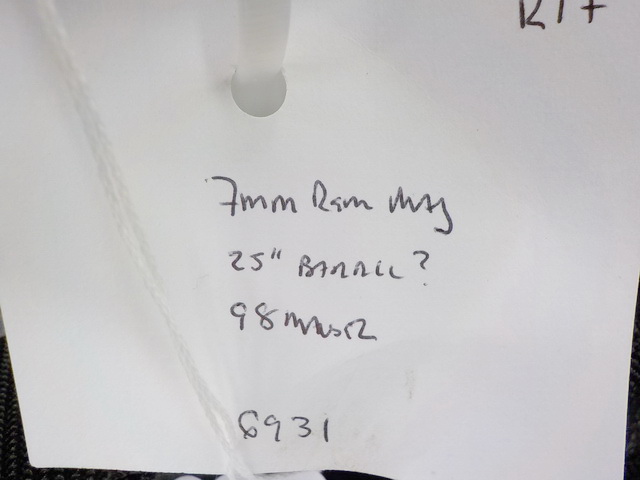 R17
7mm Rem Mag
25" BARREL?
98 Mauser
6931